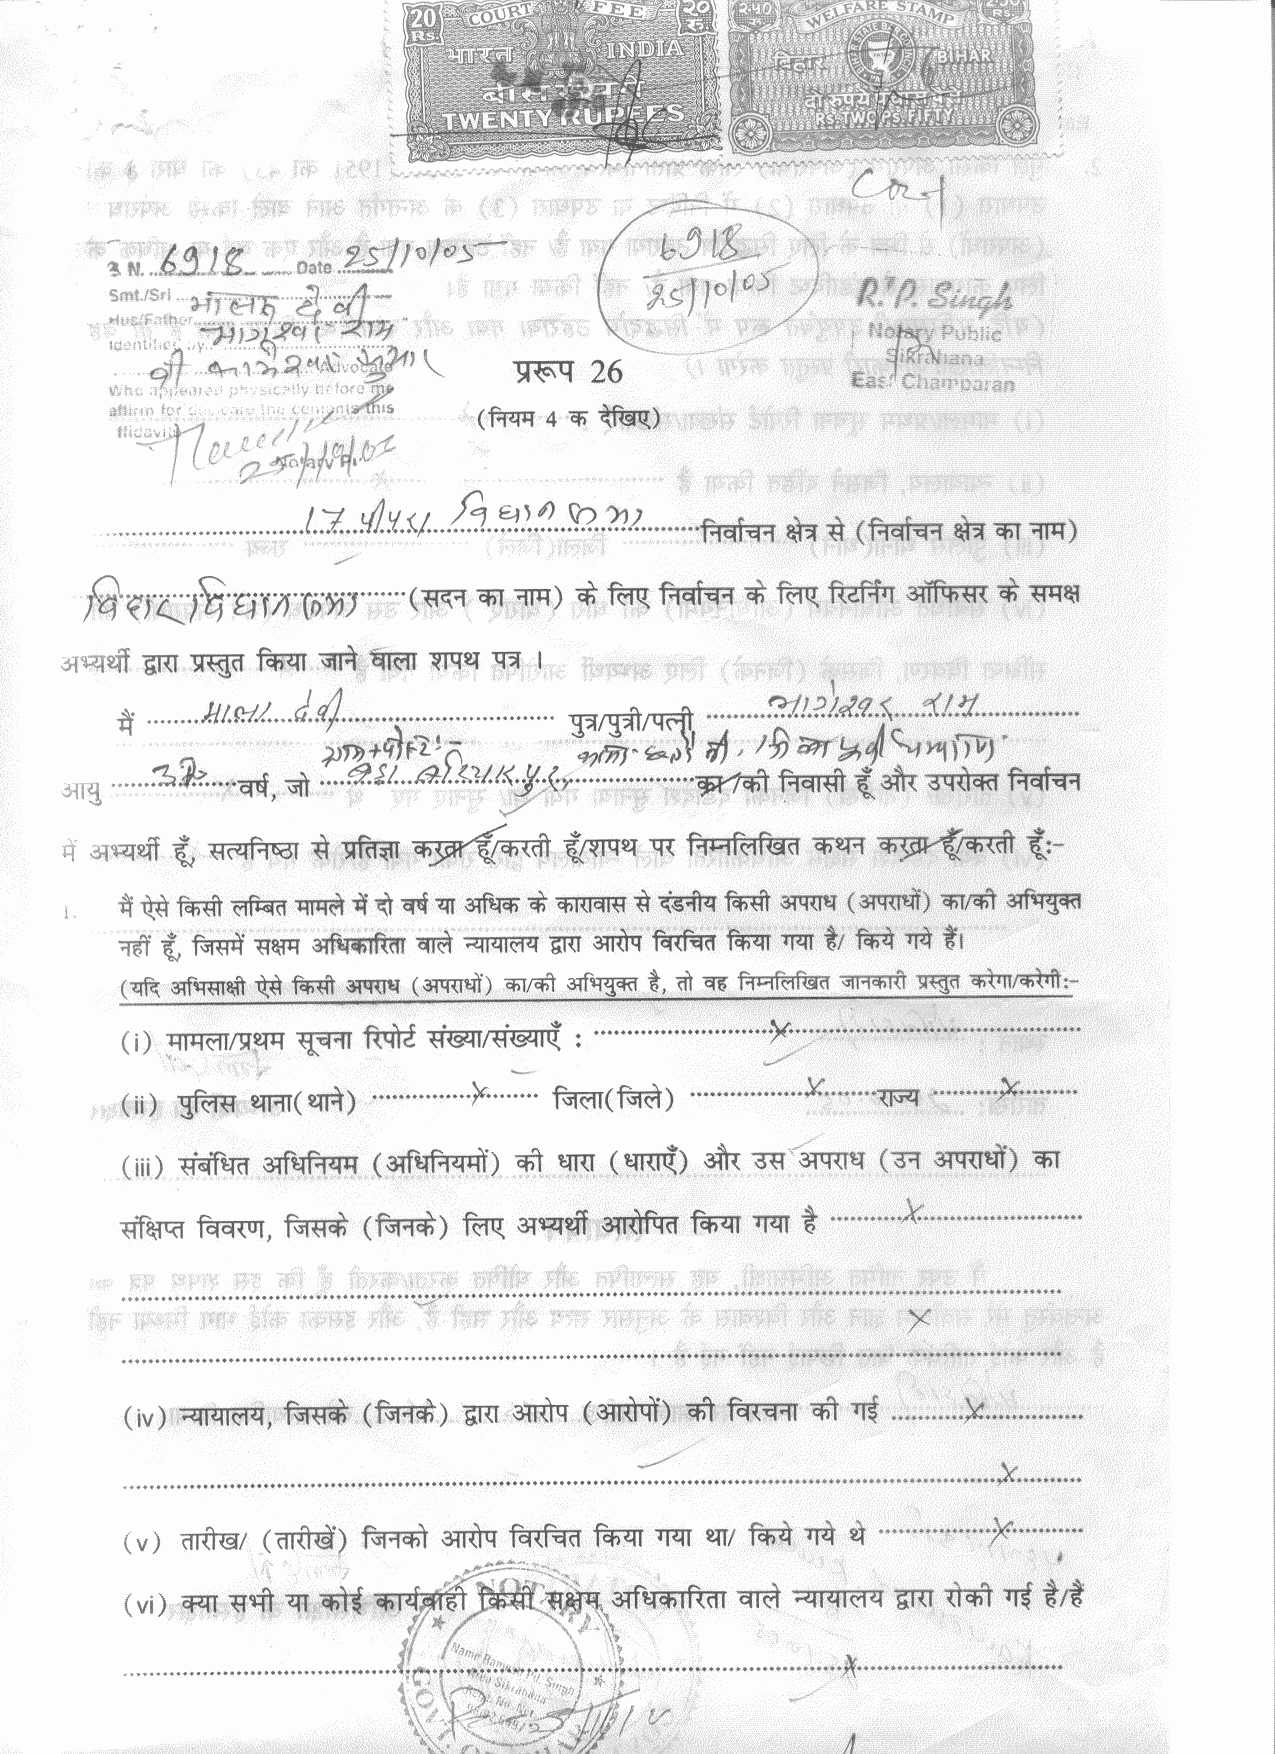 20 Rs. COURT FEE २० रू
भारत INDIA
बीस रूपये
TWENTY RUPEES
२.५० WELFARE STAMP
बिहार BIHAR
दो रुपये पचास पैसे
RS. TWO PS. FIFTY
6918
25/10/05
S N. 6918 Date 25/10/05
Smt./Sri माला देवी
Hus/Father भागेश्वर राम
Identified by
Advocate
Who appeared physically before me
affirm for the contents this
ffidavit
Notary P.
R. P. Singh
Notary Public
Sikrahana
East Champaran
प्ररूप 26
(नियम 4 क देखिए)
17 पीपरा विधान सभा निर्वाचन क्षेत्र से (निर्वाचन क्षेत्र का नाम)
बिहार विधान सभा (सदन का नाम) के लिए निर्वाचन के लिए रिटर्निंग ऑफिसर के समक्ष
अभ्यर्थी द्वारा प्रस्तुत किया जाने वाला शपथ पत्र ।
मैं माला देवी पुत्र/पुत्री/पत्नी भागेश्वर राम
ग्राम+पो०:-
आयु वर्ष, जो का/की निवासी हूँ और उपरोक्त निर्वाचन
में अभ्यर्थी हूँ, सत्यनिष्ठा से प्रतिज्ञा करता हूँ/करती हूँ/शपथ पर निम्नलिखित कथन करता हूँ/करती हूँ:-
1. मैं ऐसे किसी लम्बित मामले में दो वर्ष या अधिक के कारावास से दंडनीय किसी अपराध (अपराधों) का/की अभियुक्त
नहीं हूँ, जिसमें सक्षम अधिकारिता वाले न्यायालय द्वारा आरोप विरचित किया गया है/ किये गये हैं।
(यदि अभिसाक्षी ऐसे किसी अपराध (अपराधों) का/की अभियुक्त है, तो वह निम्नलिखित जानकारी प्रस्तुत करेगा/करेगी:-
(i) मामला/प्रथम सूचना रिपोर्ट संख्या/संख्याएँ : x
(ii) पुलिस थाना(थाने) x जिला(जिले) x राज्य x
(iii) संबंधित अधिनियम (अधिनियमों) की धारा (धाराएँ) और उस अपराध (उन अपराधों) का
संक्षिप्त विवरण, जिसके (जिनके) लिए अभ्यर्थी आरोपित किया गया है x
x
(iv) न्यायालय, जिसके (जिनके) द्वारा आरोप (आरोपों) की विरचना की गई x
x
(v) तारीख/ (तारीखें) जिनको आरोप विरचित किया गया था/ किये गये थे x
(vi) क्या सभी या कोई कार्यवाही किसी सक्षम अधिकारिता वाले न्यायालय द्वारा रोकी गई है/हैं
x
NOTARY
Area Sikrahana
GOVT. OF